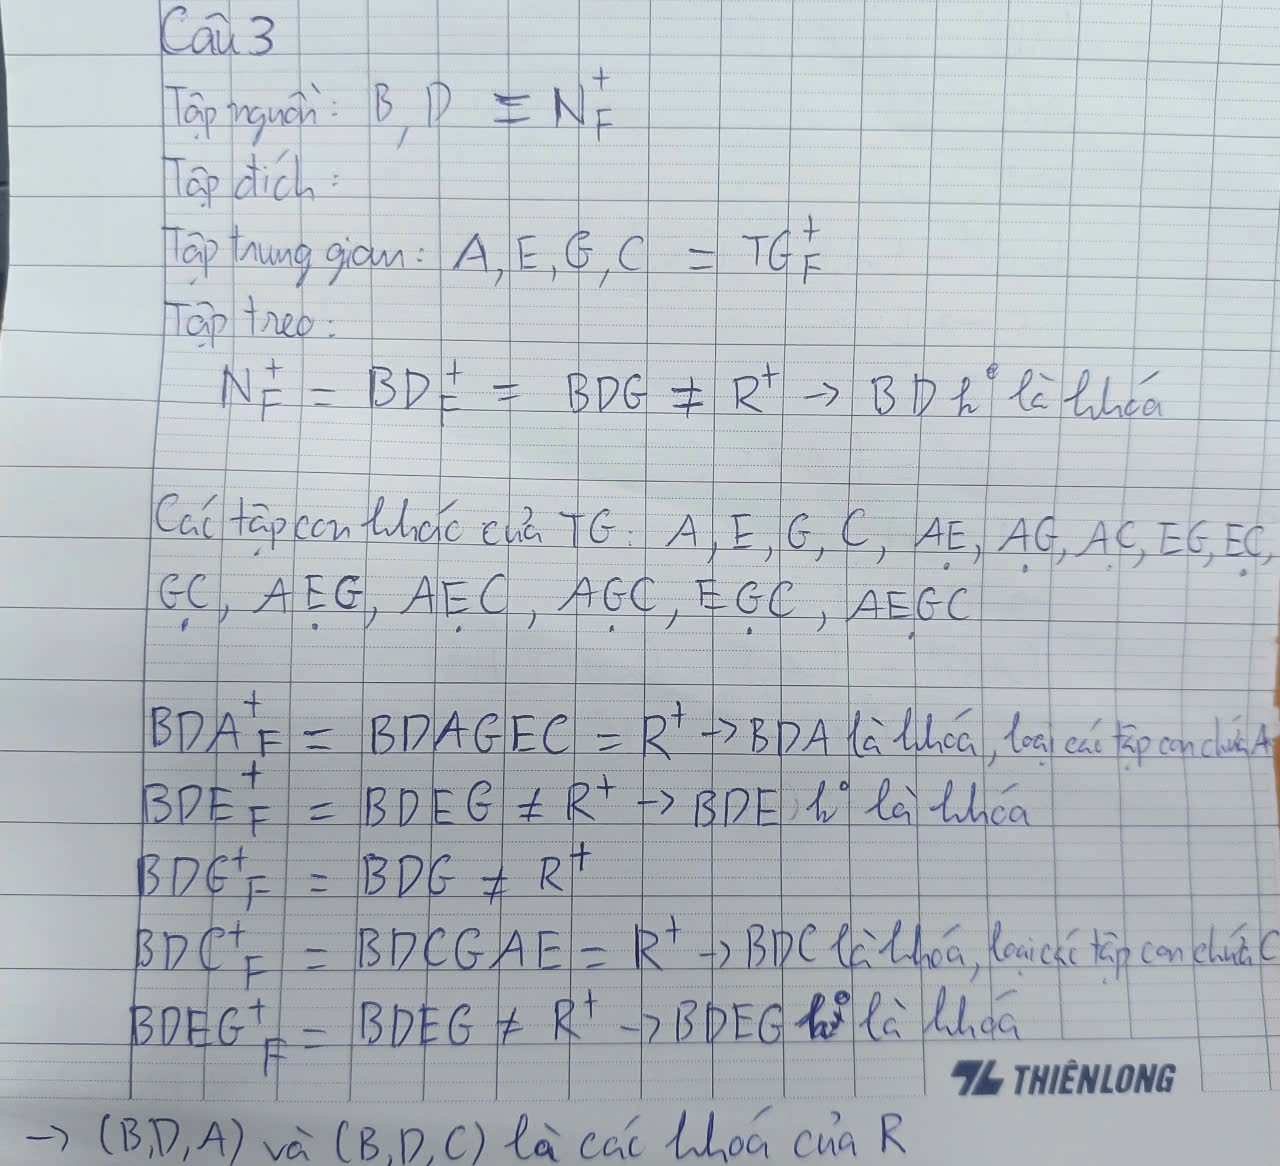 Câu 3
Tập nguồn: B, D = N⁺F
Tập đích:
Tập trung gian: A, E, G, C = TG⁺F
Tập treo:
N⁺F = BD⁺F = BDG ≠ R⁺ → BD k° là khoá
Các tập con khác của TG: A, E, G, C, AE, AG, AC, EG, EC,
GC, AEG, AEC, AGC, EGC, AEGC
BDA⁺F = BDAGEC = R⁺ → BDA là khoá, loại các tập con chứa A
BDE⁺F = BDEG ≠ R⁺ → BDE k° là khoá
BDG⁺F = BDG ≠ R⁺
BDC⁺F = BDCGAE = R⁺ → BDC là khoá, loại các tập con chứa C
BDEG⁺F = BDEG ≠ R⁺ → BDEG k° là khoá
THIÊN LONG
→ (B,D,A) và (B,D,C) là các khoá của R